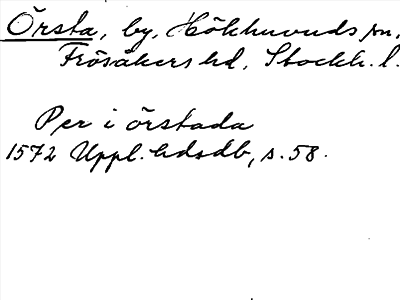 Örsta, by, Hökhuvuds sn,
Frösåkers hd, Stockh. l.
Per i örstada
1572 Uppl. hdsdb, s. 58.